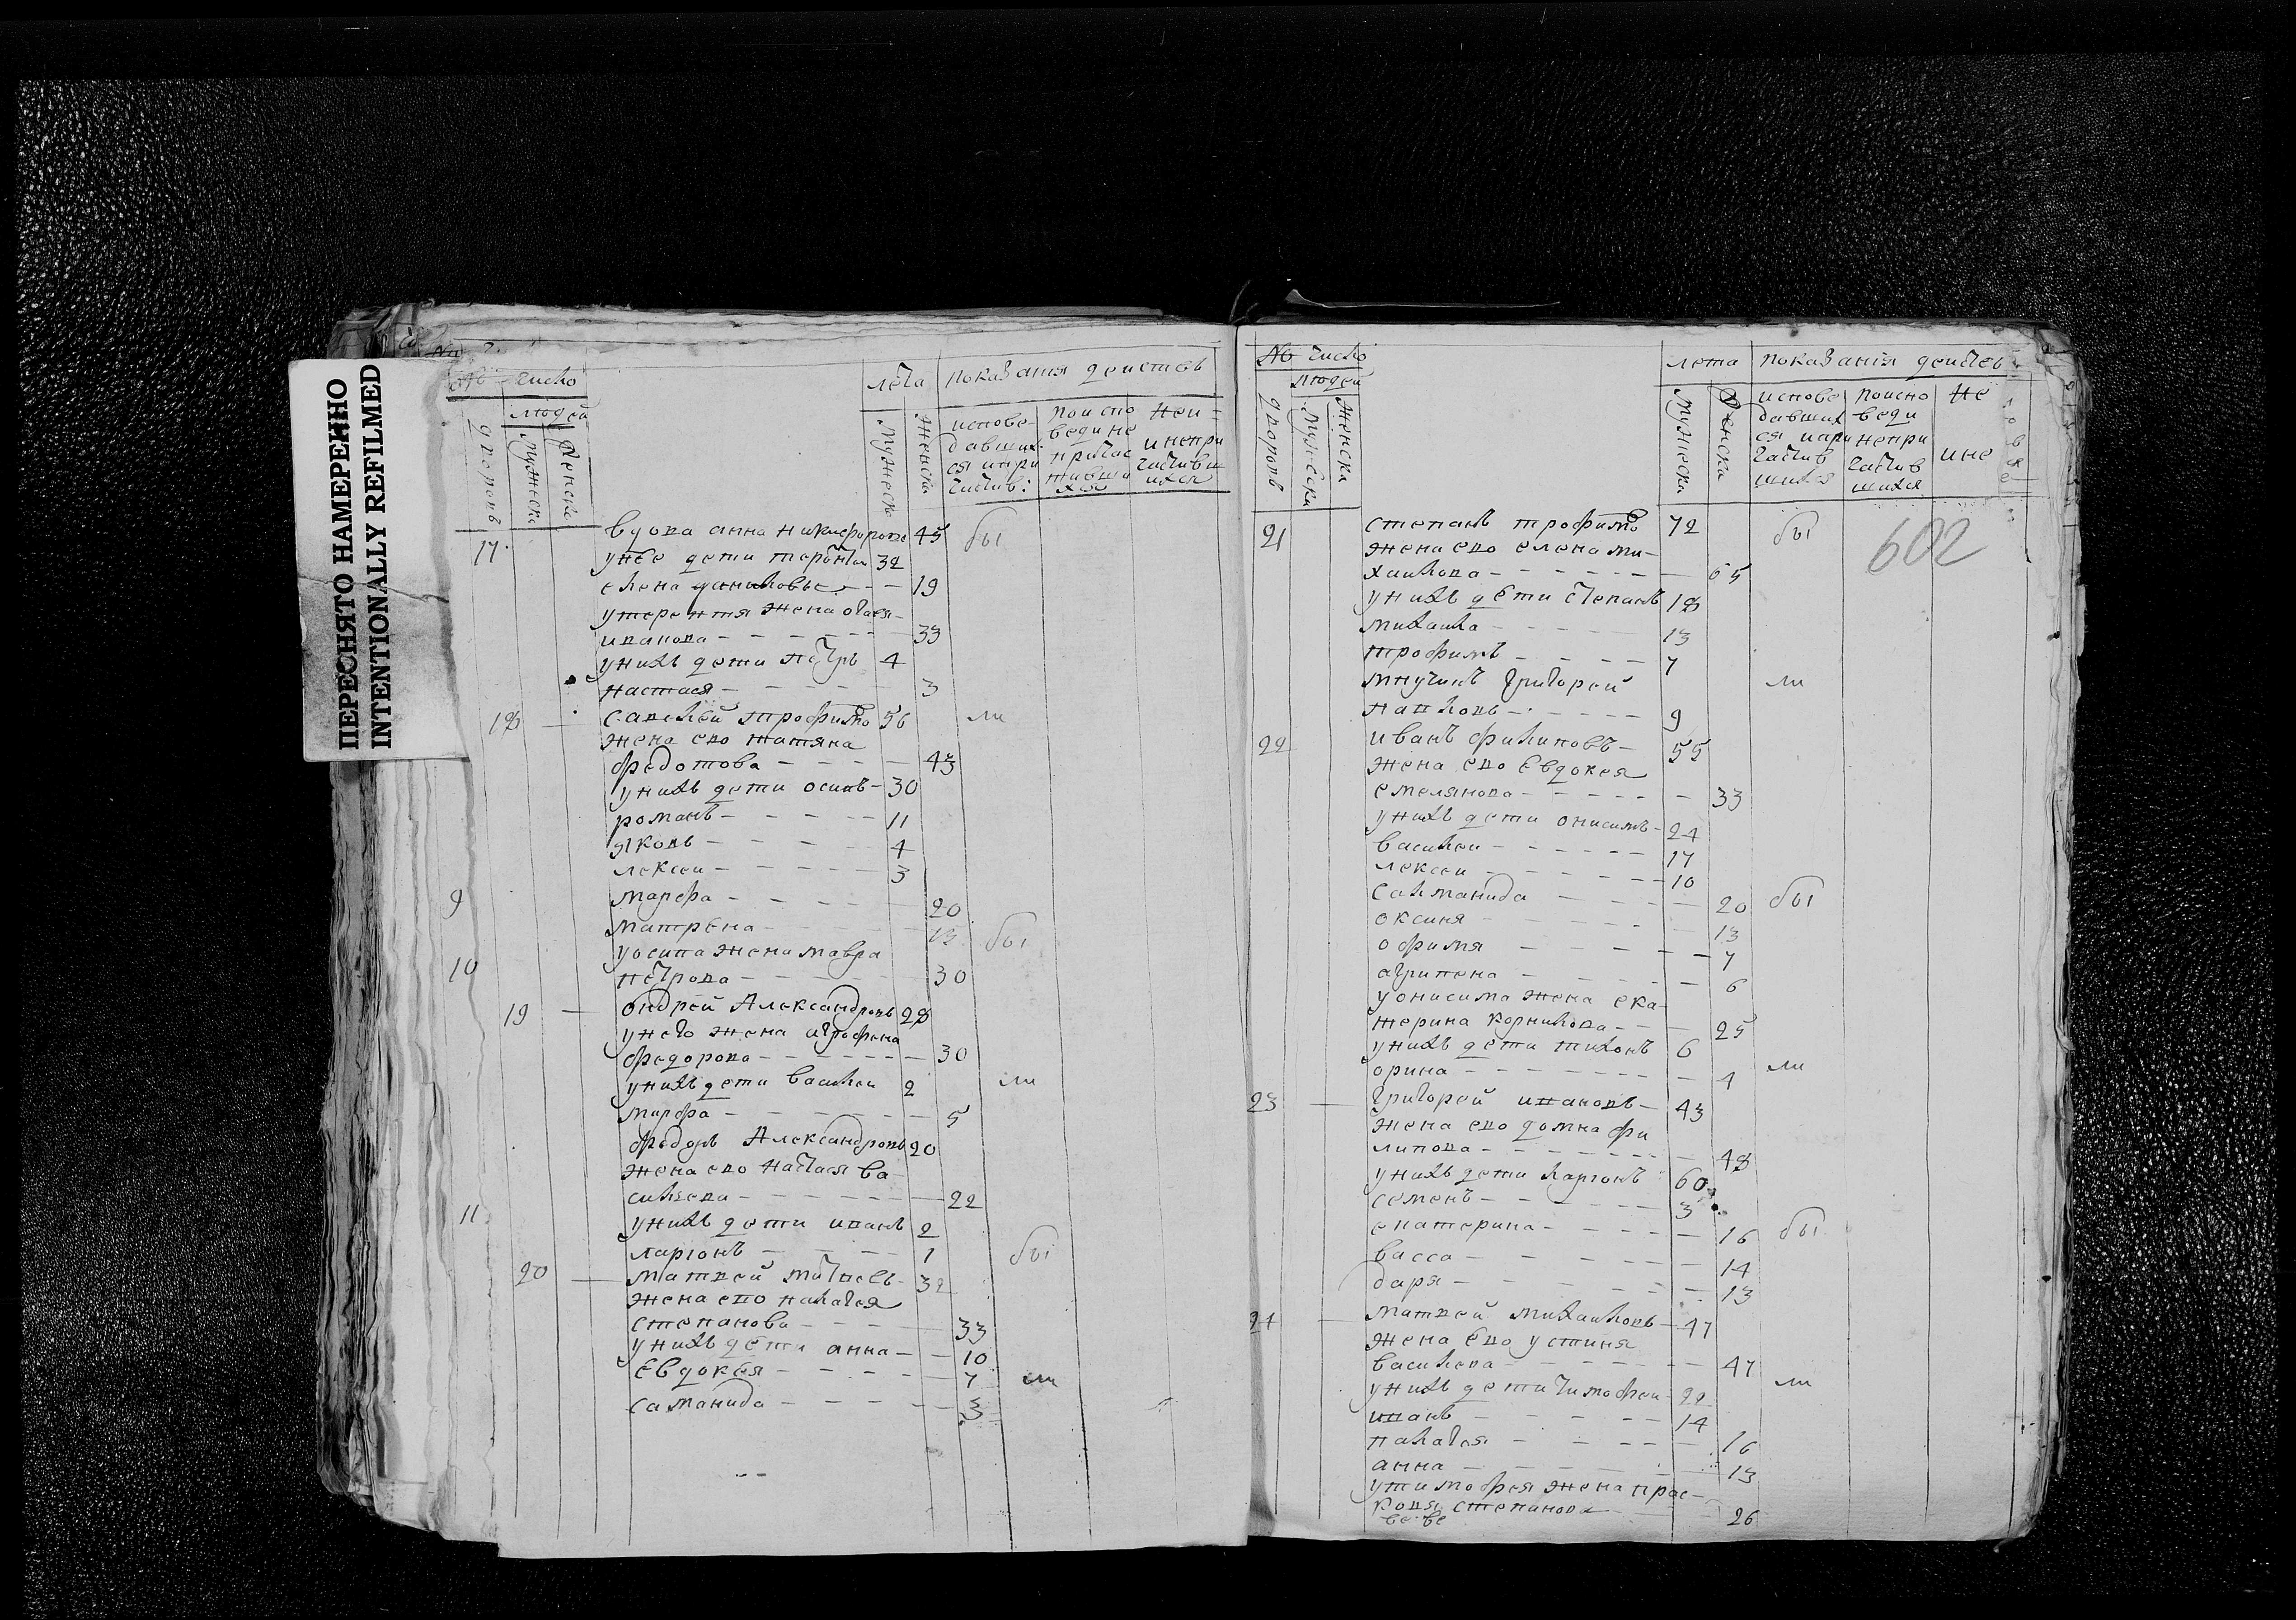 ПЕРЕСНЯТО НАМЕРЕННО
INTENTIONALLY REFILMED
№ число
людей
дворовъ
мужеска
женска
лета
мужеска
женска
показания действъ
испове
давших
ся ипри
частив:
поиспо
веди не
причас
тивши
хся
неи
инепри
частивш
ихся
вдова анна никифорова 45 бы
17 унее дети терентеи 32
елена даниловы 19
утерентя жена
иванова 33
унихъ дети петръ 4
настася 3
18 савелей трофимо 56 ли
жена ево татяна
федотова 43
унихъ дети осипъ 30
романъ 11
яковъ 4
лексеи 3
9 марфа 20
матрена 13 бы
уосипа жена мавра
10 петрова 30
19 ондрей Александровъ 28
унего жена аграфена
федорова 30
унихъ дети василеи 2 ли
марфа 5
федоръ Александровъ 20
жена ево настася ва
силева 22
11 унихъ дети иванъ 2
ларионъ 1 бы
20 матвей 32
жена ево палагея
степанова 33
унихъ дети анна 10
Евдокея 7 ли
саманида 3
№ число
людей
дворовъ
мужеска
женска
лета
мужеска
женска
показания действъ
испове
давших
ся ипри
частив
шихся
поиспо
веди
непри
частив
шихся
не
ине
602
21 степанъ трофимо 72 бы
жена ево елена ми
хаилова 65
унихъ дети степанъ 18
михаила 13
трофимъ 7
мнучикъ григорей ли
павловъ 9
22 иванъ филиповъ 55
жена ево Евдокея
емелянова 33
унихъ дети онисимъ 24
василеи 17
лексеи 10
салманида 20 бы
оксиня 13
офимя 7
агрипена 6
уонисима жена ека
терина корнилова 25
унихъ дети тихонъ 6
орина 4 ли
23 григорей ивановъ 43
жена ево домна фи
липова 48
унихъ дети ларионъ 60
семенъ 3
екатерина 16 бы
васса 14
даря 13
24 матвей михаиловъ 47
жена ево устиня
василева 47
унихъ дети тимофеи 22 ли
иванъ 14
палагея 16
анна 13
утимофея жена прас
ковя степанова 26